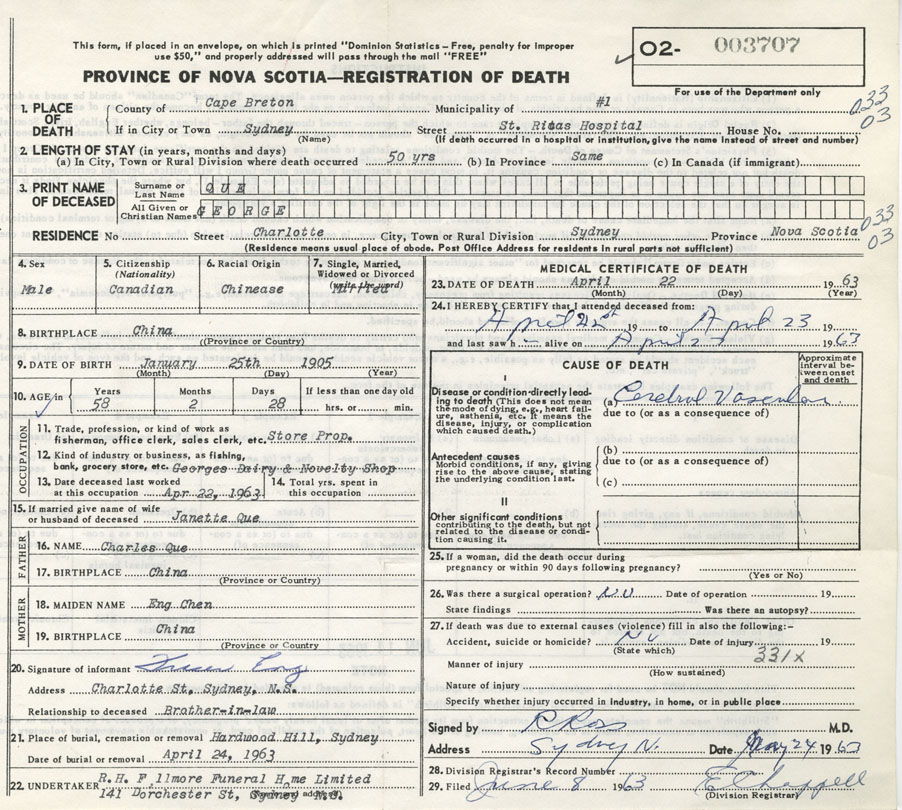 This form, if placed in an envelope, on which is printed "Dominion Statistics – Free, penalty for improper
use $50," and properly addressed will pass through the mail "FREE"
O2- 003707
For use of the Department only
PROVINCE OF NOVA SCOTIA—REGISTRATION OF DEATH
033
03
1. PLACE OF DEATH
County of Cape Breton Municipality of #1
If in City or Town Sydney Street St. Ritas Hospital House No.
(Name) (If death occurred in a hospital or institution, give the name instead of street and number)
2. LENGTH OF STAY (in years, months and days)
(a) In City, Town or Rural Division where death occurred 50 yrs (b) In Province Same (c) In Canada (if immigrant)
3. PRINT NAME OF DECEASED
Surname or Last Name QUE
All Given or Christian Names GEORGE
033
03
RESIDENCE No Street Charlotte City, Town or Rural Division Sydney Province Nova Scotia
(Residence means usual place of abode. Post Office Address for residents in rural parts not sufficient)
4. Sex
Male
5. Citizenship
(Nationality)
Canadian
6. Racial Origin
Chinease
7. Single, Married,
Widowed or Divorced
(write the word)
Married
8. BIRTHPLACE China
(Province or Country)
9. DATE OF BIRTH January 25th 1905
(Month) (Day) (Year)
10. AGE in
Years Months Days If less than one day old
58 2 28 hrs. or min.
OCCUPATION
11. Trade, profession, or kind of work as
fisherman, office clerk, sales clerk, etc. Store Prop.
12. Kind of industry or business, as fishing,
bank, grocery store, etc. Georges Dairy & Novelty Shop
13. Date deceased last worked
at this occupation Apr 22, 1963
14. Total yrs. spent in
this occupation
15. If married give name of wife
or husband of deceased Janette Que
FATHER
16. NAME Charles Que
17. BIRTHPLACE China
(Province or Country)
MOTHER
18. MAIDEN NAME Eng Chen
19. BIRTHPLACE China
(Province or Country
20. Signature of informant
Address Charlotte St, Sydney, N.S.
Relationship to deceased Brother-in-law
21. Place of burial, cremation or removal Hardwood Hill, Sydney
Date of burial or removal April 24, 1963
22. UNDERTAKER R.H. F llmore Funeral H me Limited
141 Dorchester St, Sydney N.S.
MEDICAL CERTIFICATE OF DEATH
23. DATE OF DEATH April 22 1963
(Month) (Day) (Year)
24. I HEREBY CERTIFY that I attended deceased from:
April 22st 19 to April 23 19
and last saw h alive on April 2 1963
CAUSE OF DEATH
Approximate interval between onset and death
I
Disease or condition directly leading
to death (This does not mean
the mode of dying, e.g., heart failure,
asthenia, etc. It means the
disease, injury, or complication
which caused death.)
(a) Cerebral Vascular
due to (or as a consequence of)
Antecedent causes
Morbid conditions, if any, giving
rise to the above cause, stating
the underlying condition last.
(b)
due to (or as a consequence of)
(c)
II
Other significant conditions
contributing to the death, but not
related to the disease or condition
causing it.
25. If a woman, did the death occur during
pregnancy or within 90 days following pregnancy?
(Yes or No)
26. Was there a surgical operation? No Date of operation 19
State findings Was there an autopsy?
27. If death was due to external causes (violence) fill in also the following:–
Accident, suicide or homicide? No Date of injury 19
(State which)
331X
Manner of injury
(How sustained)
Nature of injury
Specify whether injury occurred in industry, in home, or in public place
Signed by R Ross M.D.
Address Sydney N. Date May 24 1963
28. Division Registrar's Record Number
29. Filed June 8 1963 E Cheppell
(Division Registrar)